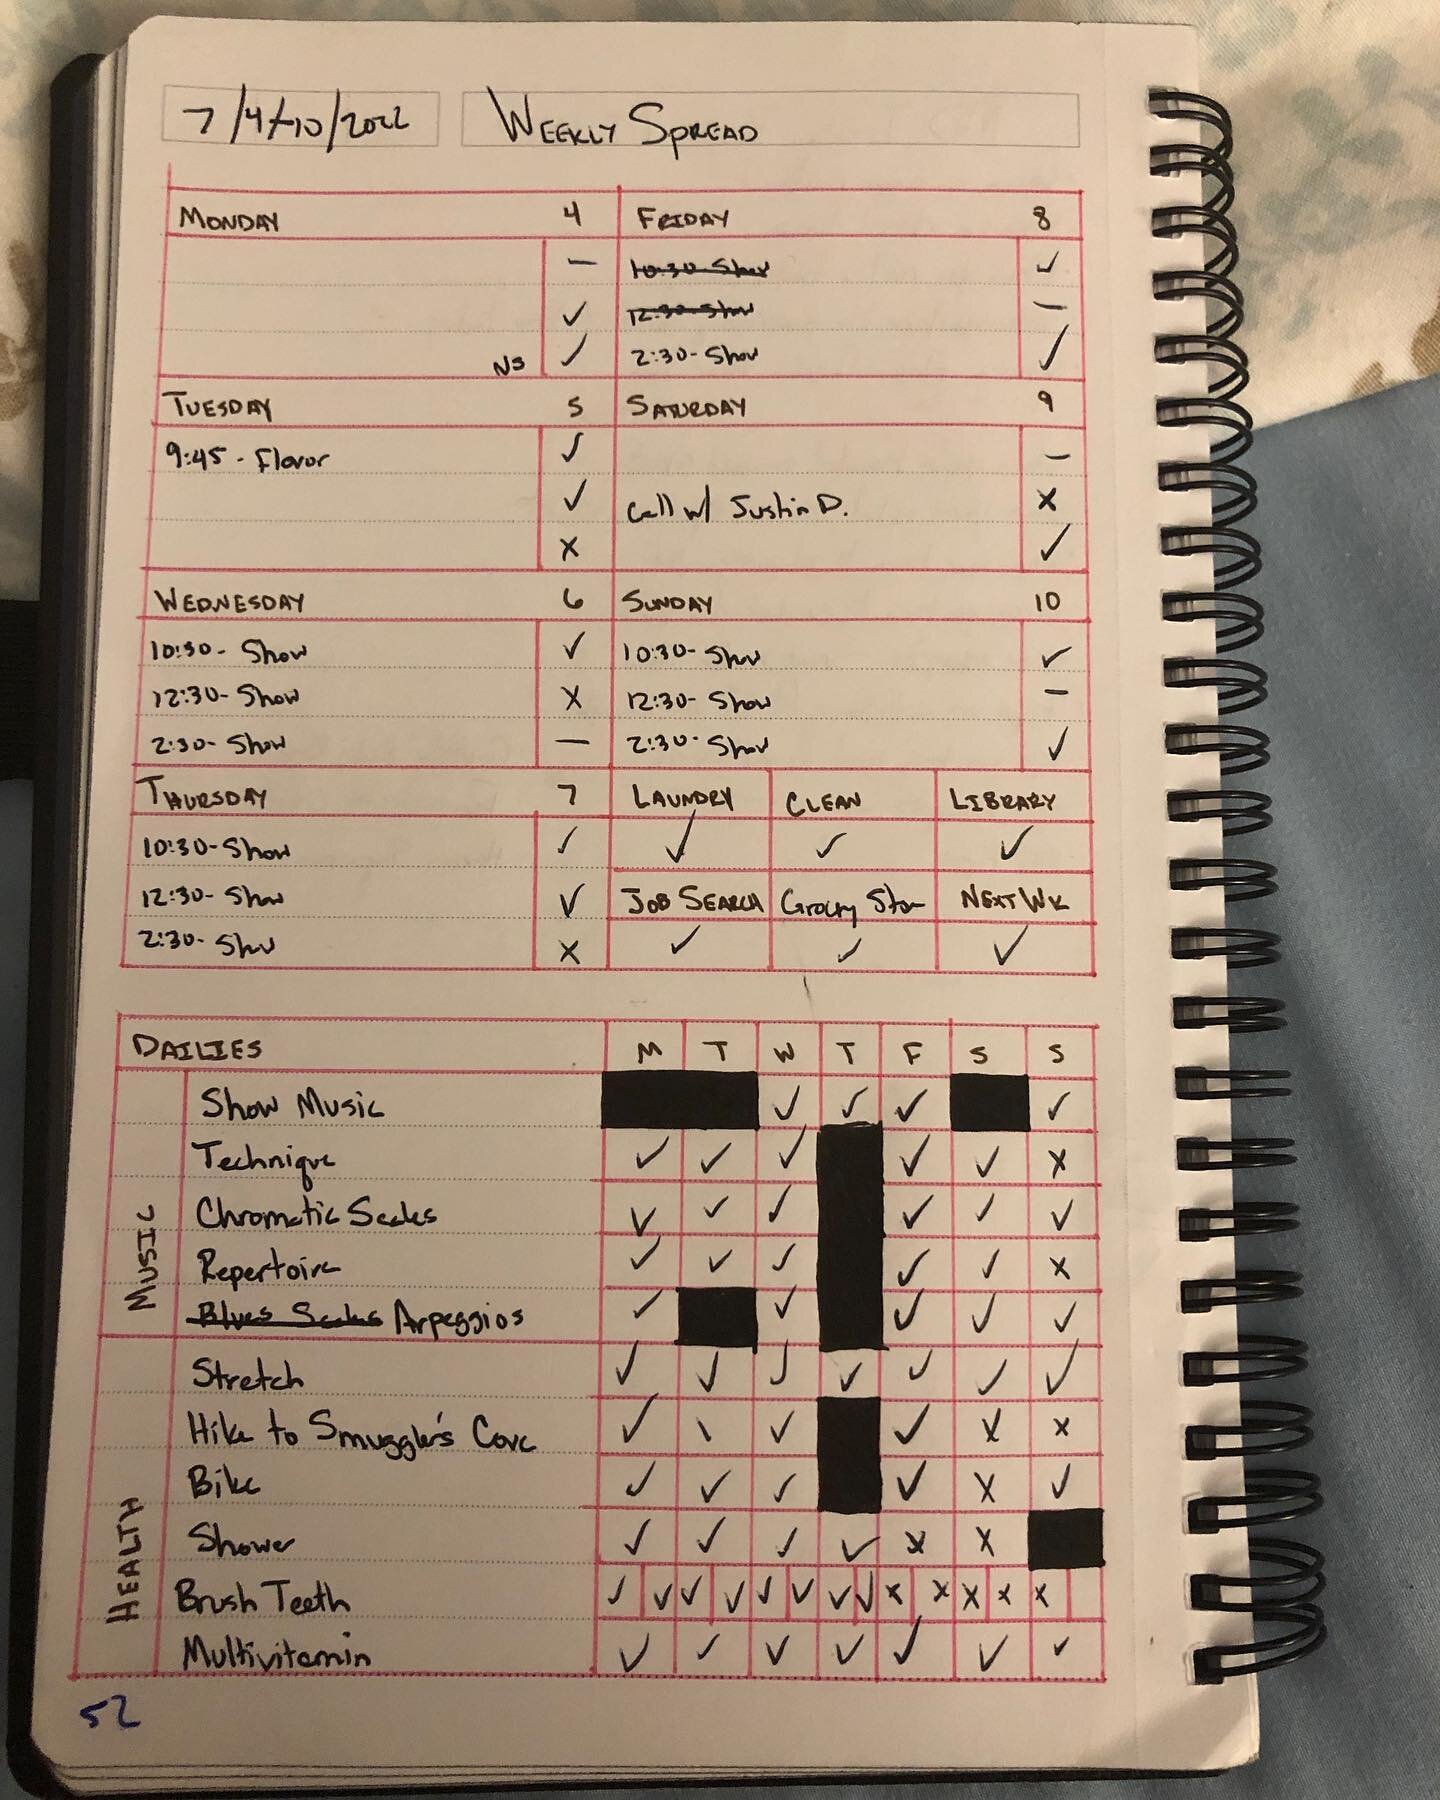 7/4-10/2022 WEEKLY SPREAD
MONDAY 4
—
✓
NS ✓
TUESDAY 5
9:45 - Flavor ✓
✓
X
WEDNESDAY 6
10:30- Show ✓
12:30- Show X
2:30- Show —
THURSDAY 7
10:30- Show ✓
12:30- Show ✓
2:30- Show X
FRIDAY 8
10:30-Show ✓
12:30-Show —
2:30- Show ✓
SATURDAY 9
—
Call w/ Justin D. X
✓
SUNDAY 10
10:30- Show ✓
12:30- Show —
2:30- Show ✓
LAUNDRY CLEAN LIBRARY
✓ ✓ ✓
JOB SEARCH Grocery Store NEXT WK
✓ ✓ ✓
DAILIES M T W T F S S
MUSIC
Show Music ✓ ✓ ✓ ✓
Technique ✓ ✓ ✓ ✓ ✓ X
Chromatic Scales ✓ ✓ ✓ ✓ ✓ ✓
Repertoire ✓ ✓ ✓ ✓ ✓ X
Blues Scales Arpeggios ✓ ✓ ✓ ✓ ✓
HEALTH
Stretch ✓ ✓ ✓ ✓ ✓ ✓ ✓
Hike to Smuggler's Cove ✓ \ ✓ ✓ X X
Bike ✓ ✓ ✓ ✓ X ✓
Shower ✓ ✓ ✓ ✓ X X
Brush Teeth ✓ ✓ ✓ ✓ ✓ ✓ ✓ ✓ X X X X X
Multivitamin ✓ ✓ ✓ ✓ ✓ ✓ ✓
52